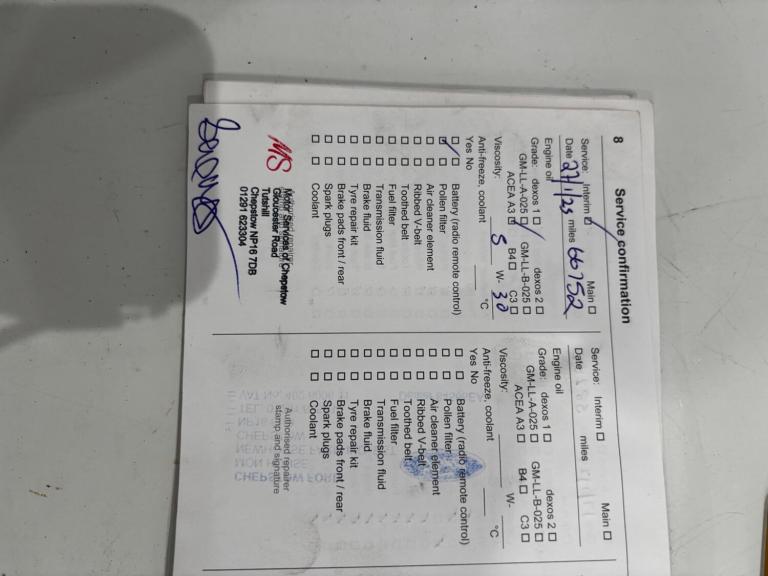 8 Service confirmation
Service: Interim ☑ Main ☐
Date 27/1/23 miles 66752
Engine oil
Grade: dexos 1 ☐ dexos 2 ☐
GM-LL-A-025 ☑ GM-LL-B-025 ☐
ACEA A3 ☐ B4 ☐ C3 ☐
Viscosity: 5 W- 30
Anti-freeze, coolant °C
Yes No
☑ ☐ Battery (radio remote control)
☑ ☐ Pollen filter
☐ ☐ Air cleaner element
☐ ☐ Ribbed V-belt
☐ ☐ Toothed belt
☐ ☐ Fuel filter
☐ ☐ Transmission fluid
☐ ☐ Brake fluid
☐ ☐ Tyre repair kit
☐ ☐ Brake pads front / rear
☐ ☐ Spark plugs
☐ ☐ Coolant
MS
Motor Services of Chepstow
Gloucester Road
Tutshill
Chepstow NP16 7DB
01291 623304
Service: Interim ☐ Main ☐
Date miles
Engine oil
Grade: dexos 1 ☐ dexos 2 ☐
GM-LL-A-025 ☐ GM-LL-B-025 ☐
ACEA A3 ☐ B4 ☐ C3 ☐
Viscosity: W-
Anti-freeze, coolant °C
Yes No
☐ ☐ Battery (radio remote control)
☐ ☐ Pollen filter
☐ ☐ Air cleaner element
☐ ☐ Ribbed V-belt
☐ ☐ Toothed belt
☐ ☐ Fuel filter
☐ ☐ Transmission fluid
☐ ☐ Brake fluid
☐ ☐ Tyre repair kit
☐ ☐ Brake pads front / rear
☐ ☐ Spark plugs
☐ ☐ Coolant
Authorised repairer
stamp and signature